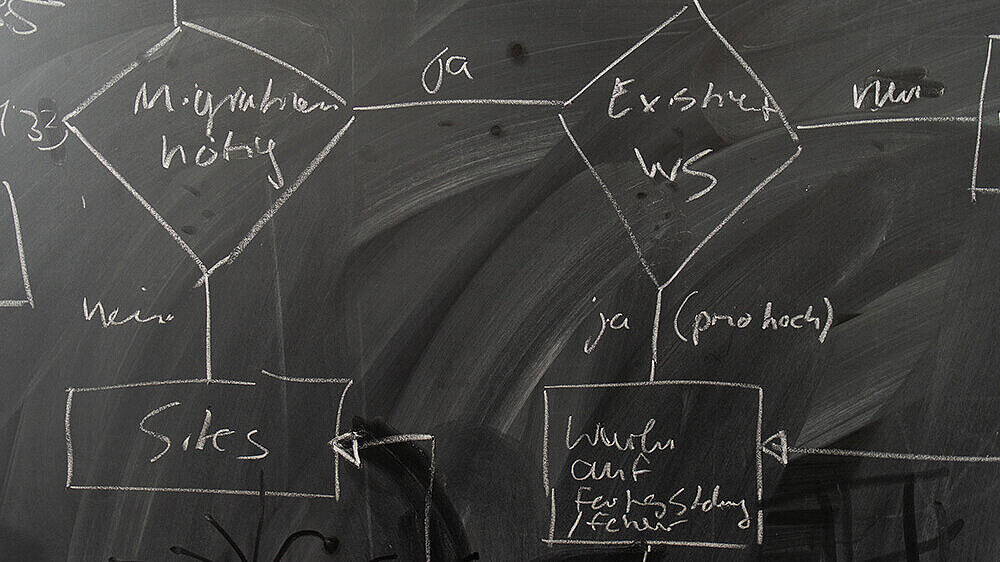 Migration
nötig
ja
Existiert
WS
nein
nein
ja
(prio hoch)
Sites
Warten
auf
Fertigstellung
/Fehler